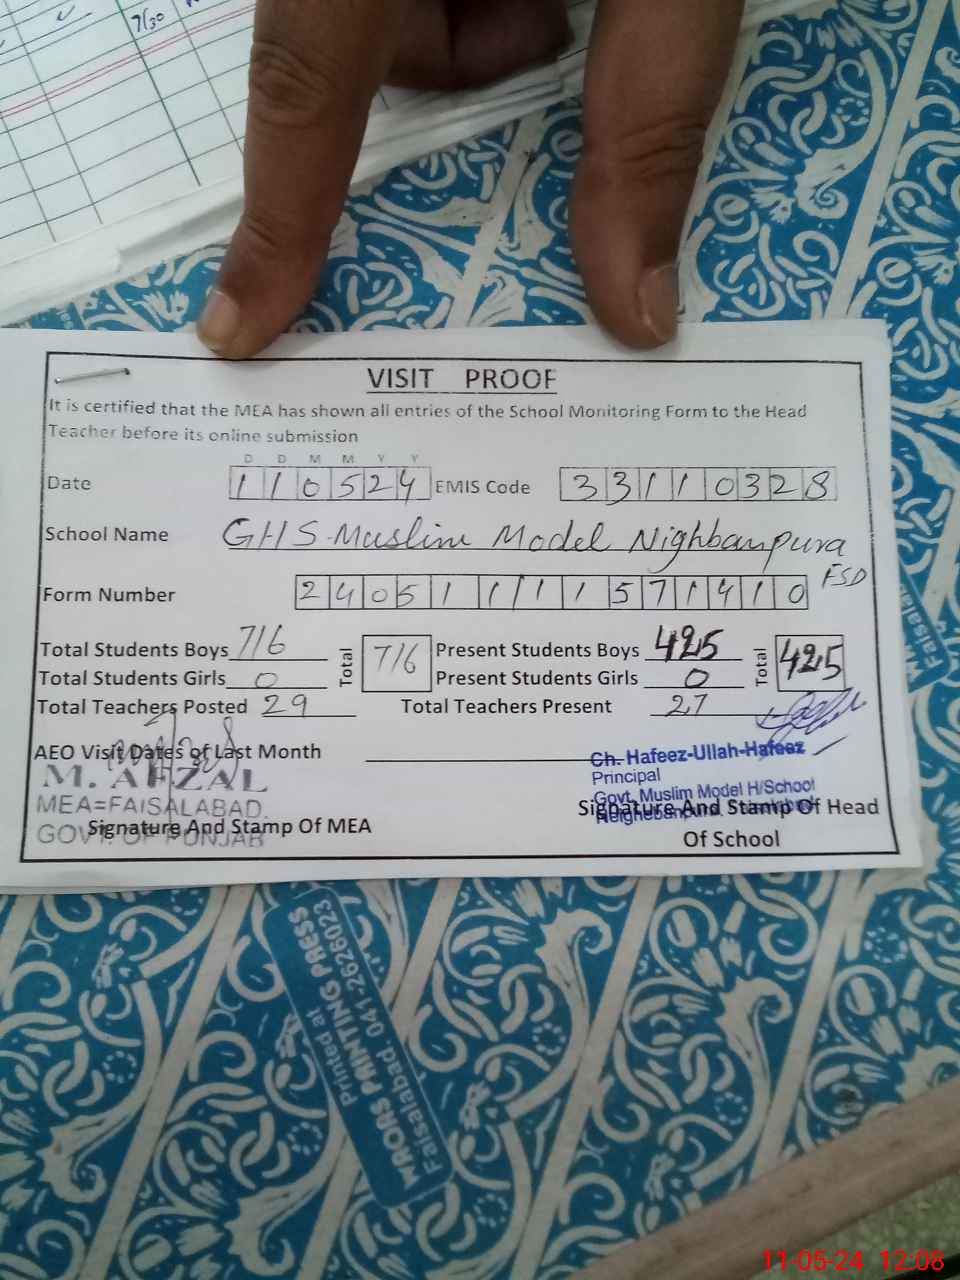 7/30
VISIT PROOF
It is certified that the MEA has shown all entries of the School Monitoring Form to the Head
Teacher before its online submission
D D M M Y Y
Date 110524 EMIS Code 33110328
School Name GHS Muslim Model Nighbanpura
FSD
Form Number 24051111571410
Total Students Boys 716 Total 716 Present Students Boys 425 Total 425
Total Students Girls 0 Present Students Girls 0
Total Teachers Posted 29 Total Teachers Present 27
AEO Visit Dates of Last Month
M. AFZAL
MEA=FAISALABAD.
GOVT. OF PUNJAB
Signature And Stamp Of MEA
Ch. Hafeez-Ullah-Hafeez
Principal
Govt. Muslim Model H/School
Signature And Stamp Of Head
Of School
Printed at
PRINTING PRESS
Faisalabad. 041-2626023
Faisalab
11-05-24 12:08